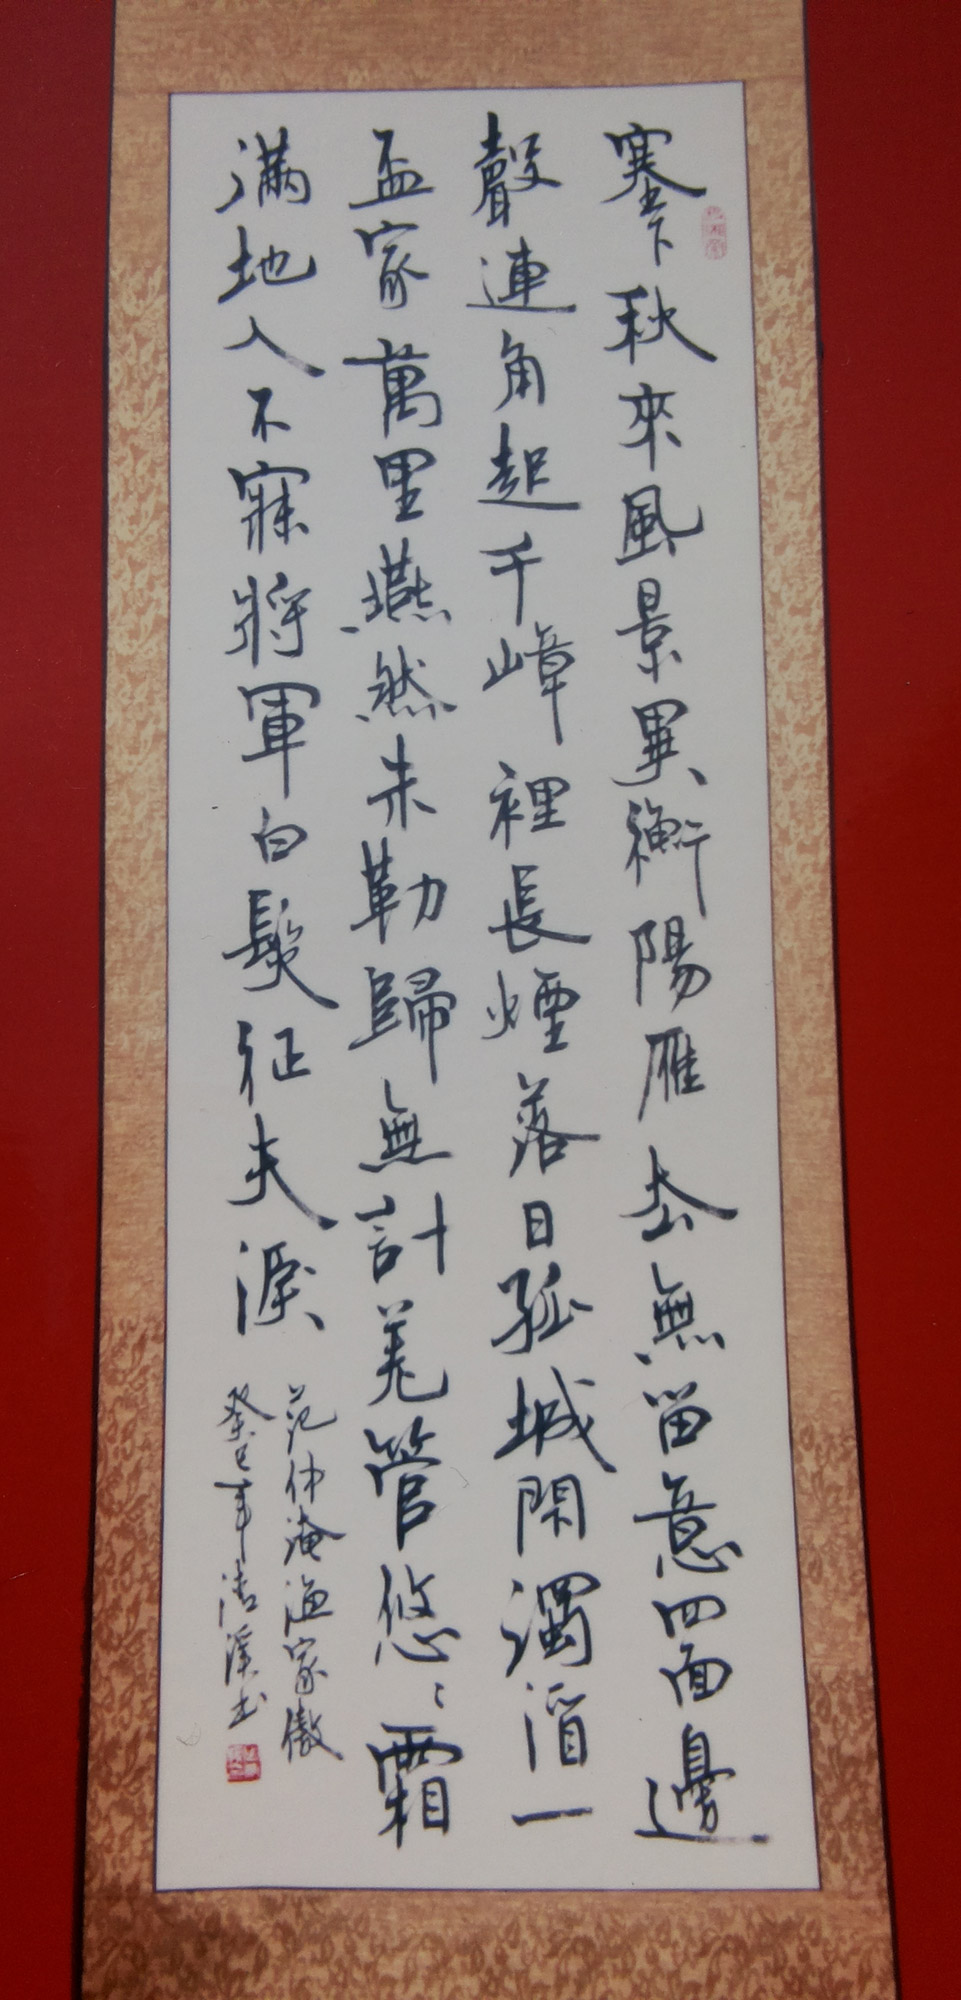 塞下秋來風景異衡陽雁去無留意四面邊
聲連角起千嶂裡長煙落日孤城閉濁酒一
盃家萬里燕然未勒歸無計羌管悠々霜
滿地人不寐將軍白髮征夫淚
范仲淹漁家傲
癸巳年清溪书